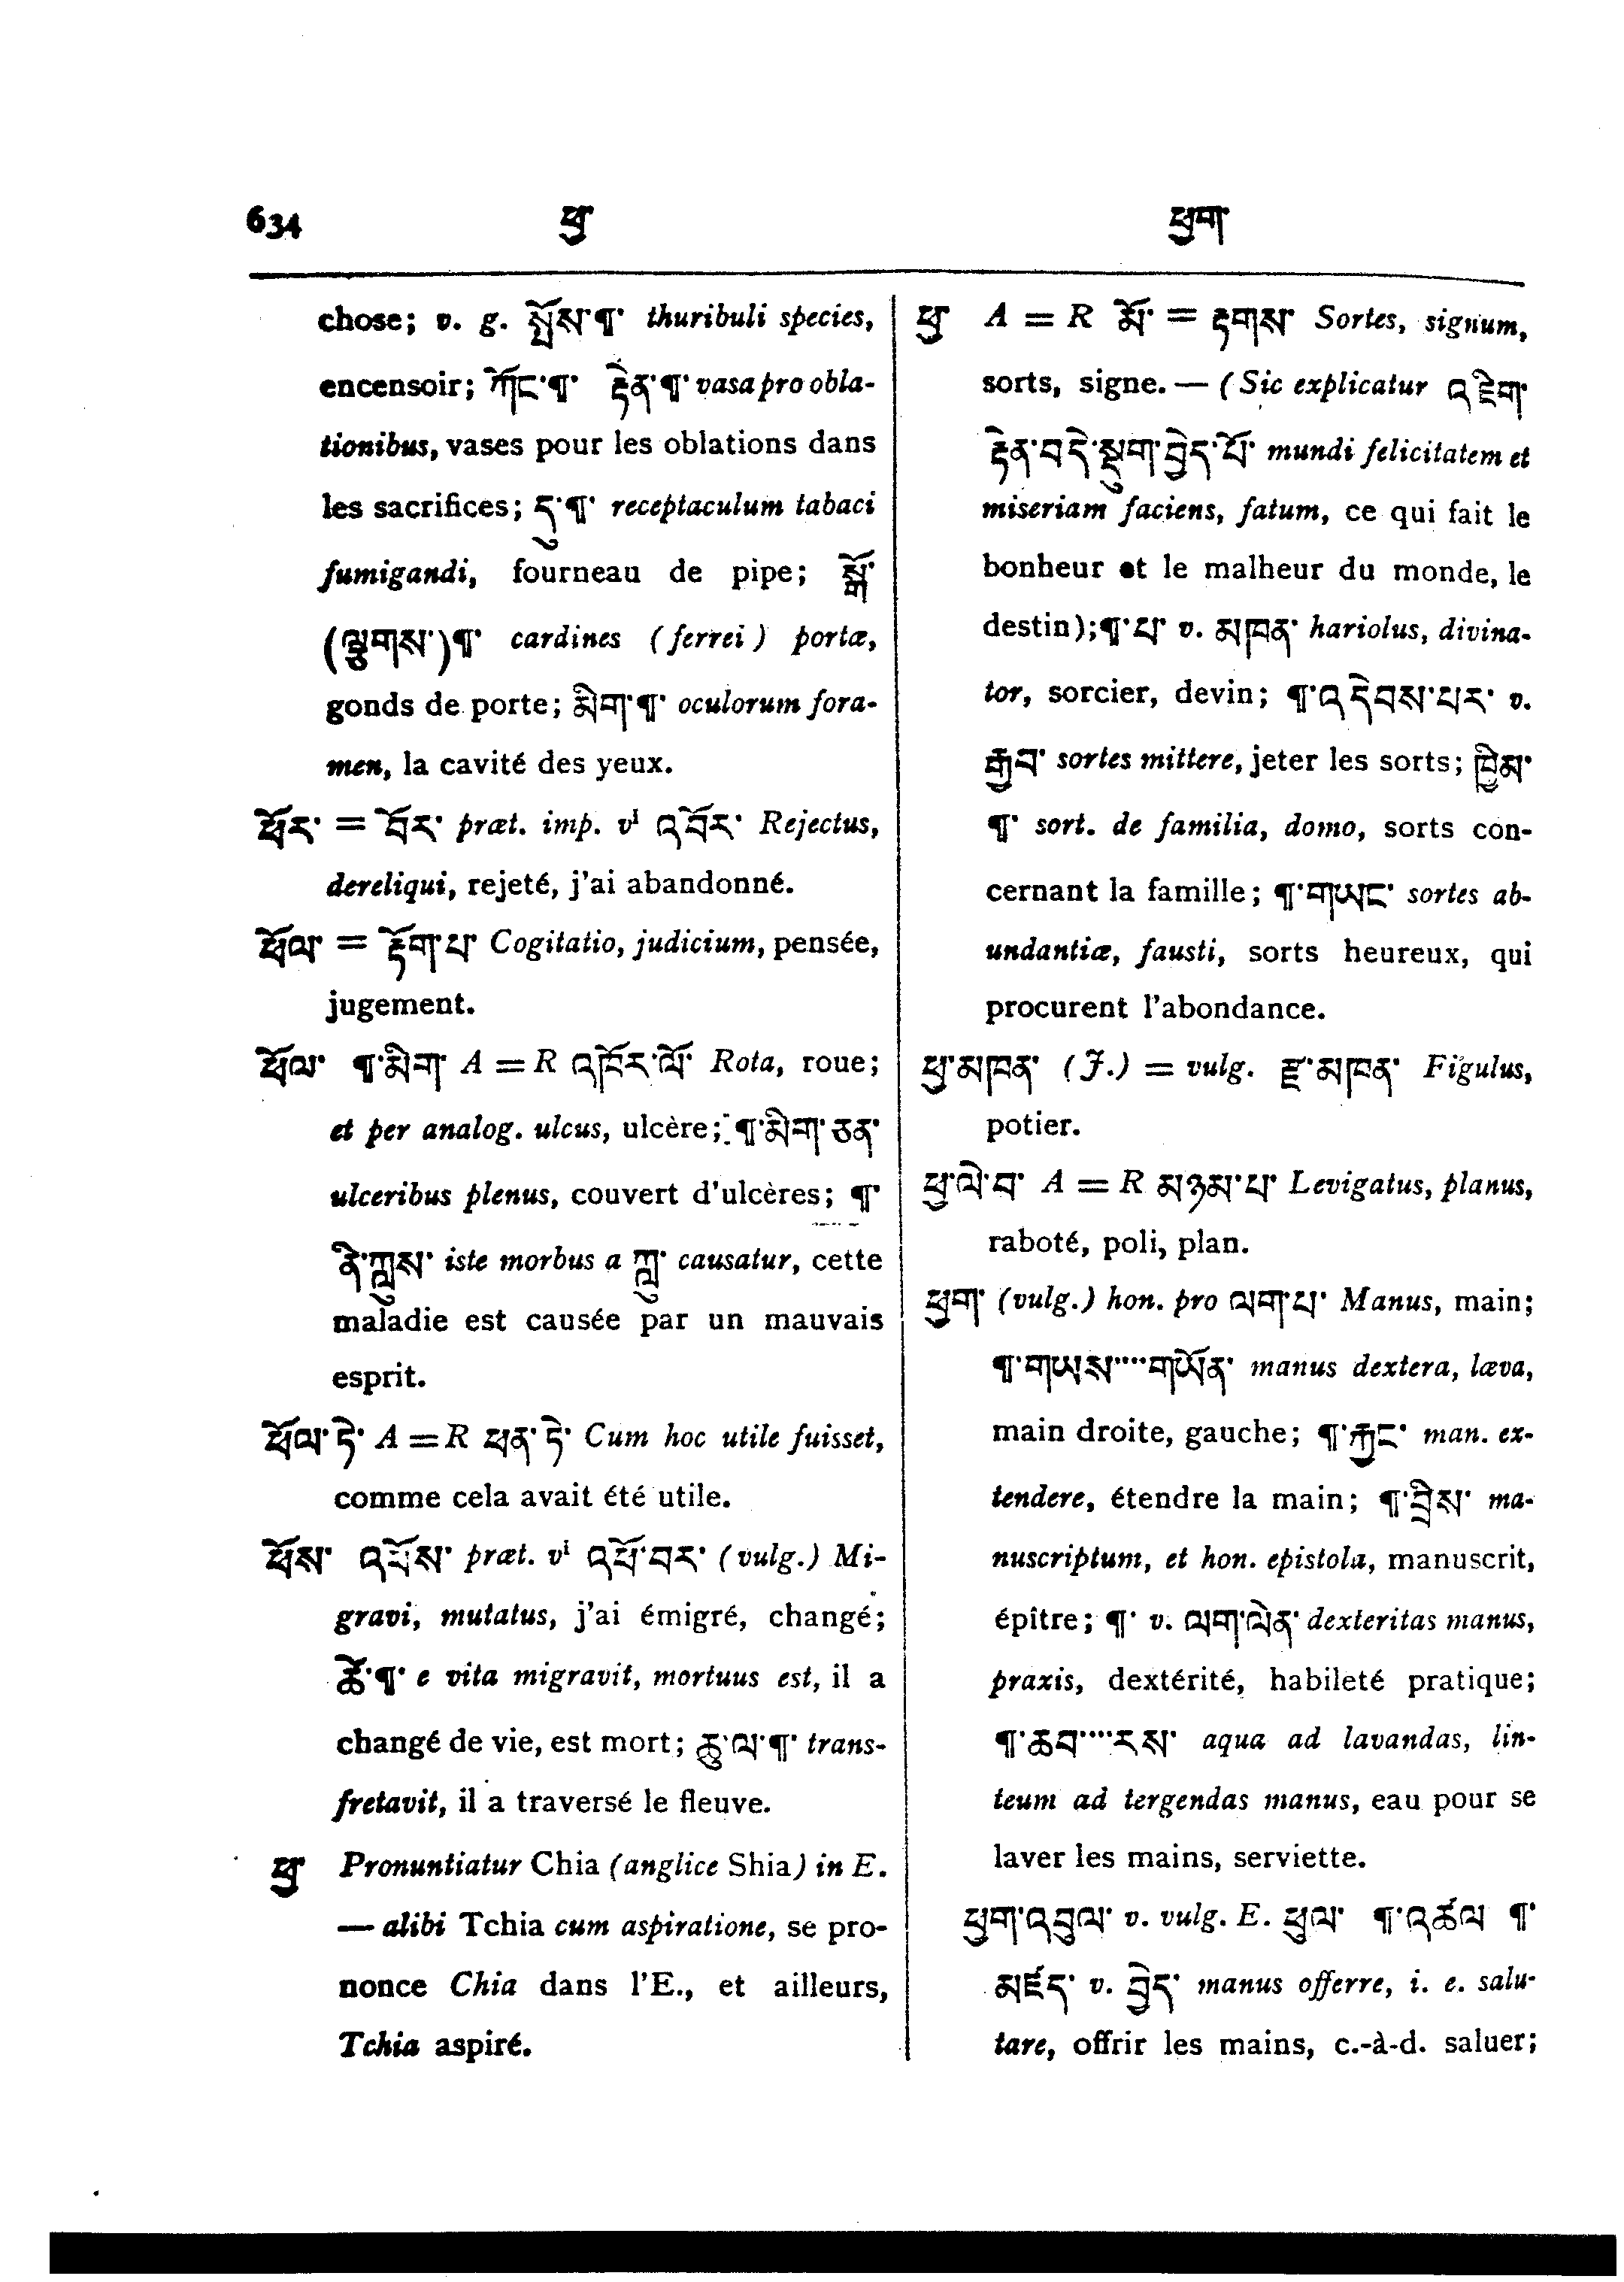 634 ཕྱ ཕྱག་
chose; v. g. སྤོས་¶་ thuribuli species,
encensoir; ཀོང་¶་ རྟེན་¶་ vasa pro obla-
tionibus, vases pour les oblations dans
les sacrifices; དུ་¶་ receptaculum tabaci
fumigandi, fourneau de pipe; སྒོ་
(ལྕགས་)¶་ cardines (ferrei) portæ,
gonds de porte; མིག་¶་ oculorum fora-
men, la cavité des yeux.
ཕོར་ = བོར་ præt. imp. vⁱ འབོར་ Rejectus,
dereliqui, rejeté, j'ai abandonné.
ཕོལ་ = རྟོག་པ་ Cogitatio, judicium, pensée,
jugement.
ཕོལ་ ¶་མིག་ A = R འཁོར་ལོ་ Rota, roue;
et per analog. ulcus, ulcère; ¶་མིག་ཅན་
ulceribus plenus, couvert d'ulcères; ¶་
ནི་ཀླུས་ iste morbus a ཀླུ་ causatur, cette
maladie est causée par un mauvais
esprit.
ཕོལ་ཏེ་ A = R ཕན་ཏེ་ Cum hoc utile fuisset,
comme cela avait été utile.
ཕོས་ འཕོས་ præt. vⁱ འཕོ་བར་ (vulg.) Mi-
gravi, mutatus, j'ai émigré, changé;
ཚེ་¶་ e vita migravit, mortuus est, il a
changé de vie, est mort; ཆུ་ལ་¶་ trans-
fretavit, il a traversé le fleuve.
ཕྱ་ Pronuntiatur Chia (anglice Shia) in E.
— alibi Tchia cum aspiratione, se pro-
nonce Chia dans l'E., et ailleurs,
Tchia aspiré.
ཕྱ་ A = R མོ་ = རྟགས་ Sortes, signum,
sorts, signe. — (Sic explicatur འཇིག་
རྟེན་བདེ་སྡུག་བྱེད་པོ་ mundi felicitatem et
miseriam faciens, fatum, ce qui fait le
bonheur et le malheur du monde, le
destin);¶་པ་ v. མཁན་ hariolus, divina-
tor, sorcier, devin; ¶་འདེབས་པར་ v.
རྒྱབ་ sortes mittere, jeter les sorts; ཁྱིམ་
¶་ sort. de familia, domo, sorts con-
cernant la famille; ¶་གཡང་ sortes ab-
undantiæ, fausti, sorts heureux, qui
procurent l'abondance.
ཕྱ་མཁན་ (J.) = vulg. རྫ་མཁན་ Figulus,
potier.
ཕྱ་ལེ་བ་ A = R མཉམ་པ་ Levigatus, planus,
raboté, poli, plan.
ཕྱག་ (vulg.) hon. pro ལག་པ་ Manus, main;
¶་གཡས་····གཡོན་ manus dextera, læva,
main droite, gauche; ¶་རྐྱང་ man. ex-
tendere, étendre la main; ¶་བྲིས་ ma-
nuscriptum, et hon. epistola, manuscrit,
épître; ¶་ v. ལག་ལེན་ dexteritas manus,
praxis, dextérité, habileté pratique;
¶་ཆབ་····རས་ aqua ad lavandas, lin-
teum ad tergendas manus, eau pour se
laver les mains, serviette.
ཕྱག་འབུལ་ v. vulg. E. ཕུལ་ ¶་འཚལ ¶་
མཛད་ v. བྱེད་ manus offerre, i. e. salu-
tare, offrir les mains, c.-à-d. saluer;